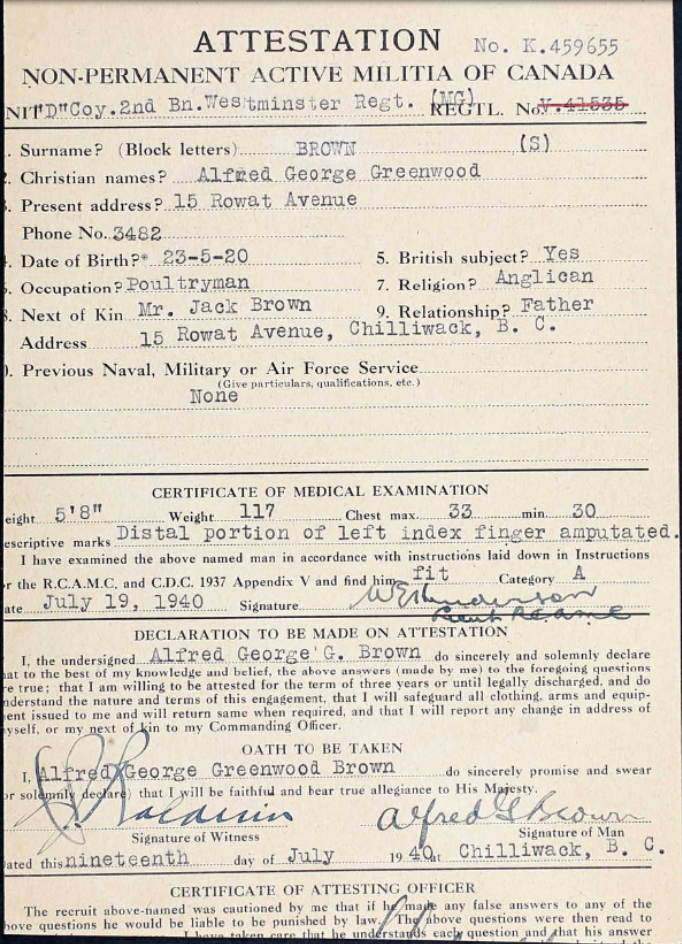 ATTESTATION No. K.459655
NON-PERMANENT ACTIVE MILITIA OF CANADA
NIT "D"Coy.2nd Bn.Westminster Regt. (MG) REGTL. No. V.41535
. Surname? (Block letters) BROWN (S)
. Christian names? Alfred George Greenwood
. Present address? 15 Rowat Avenue
Phone No. 3482
. Date of Birth?* 23-5-20 5. British subject? Yes
. Occupation? Poultryman 7. Religion? Anglican
. Next of Kin Mr. Jack Brown 9. Relationship? Father
Address 15 Rowat Avenue, Chilliwack, B. C.
. Previous Naval, Military or Air Force Service
(Give particulars, qualifications, etc.)
None
CERTIFICATE OF MEDICAL EXAMINATION
eight 5'8" Weight 117 Chest max. 33 min. 30
escriptive marks Distal portion of left index finger amputated.
I have examined the above named man in accordance with instructions laid down in Instructions
r the R.C.A.M.C. and C.D.C. 1937 Appendix V and find him fit Category A
ate July 19, 1940 Signature W E Henderson
Lieut R.C.A.M.C
DECLARATION TO BE MADE ON ATTESTATION
I, the undersigned Alfred George G. Brown do sincerely and solemnly declare
at to the best of my knowledge and belief, the above answers (made by me) to the foregoing questions
re true; that I am willing to be attested for the term of three years or until legally discharged, and do
nderstand the nature and terms of this engagement, that I will safeguard all clothing, arms and equip-
ent issued to me and will return same when required, and that I will report any change in address of
yself, or my next of kin to my Commanding Officer.
OATH TO BE TAKEN
I, Alfred George Greenwood Brown do sincerely promise and swear
or solemnly declare) that I will be faithful and bear true allegiance to His Majesty.
Baldwin Alfred G Brown
Signature of Witness Signature of Man
ated this nineteenth day of July 1940 at Chilliwack, B. C.
CERTIFICATE OF ATTESTING OFFICER
The recruit above-named was cautioned by me that if he made any false answers to any of the
bove questions he would be liable to be punished by law. The above questions were then read to
I have taken care that he understands each question and that his answer